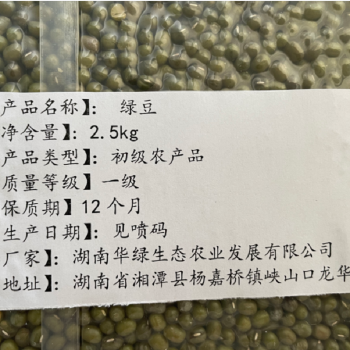 产品名称】： 绿豆
净含量】：2.5kg
产品类型】：初级农产品
质量等级】一级
保质期】12个月
生产日期】：见喷码
厂家】：湖南华绿生态农业发展有限公司
地址】：湖南省湘潭县杨嘉桥镇峡山口龙华